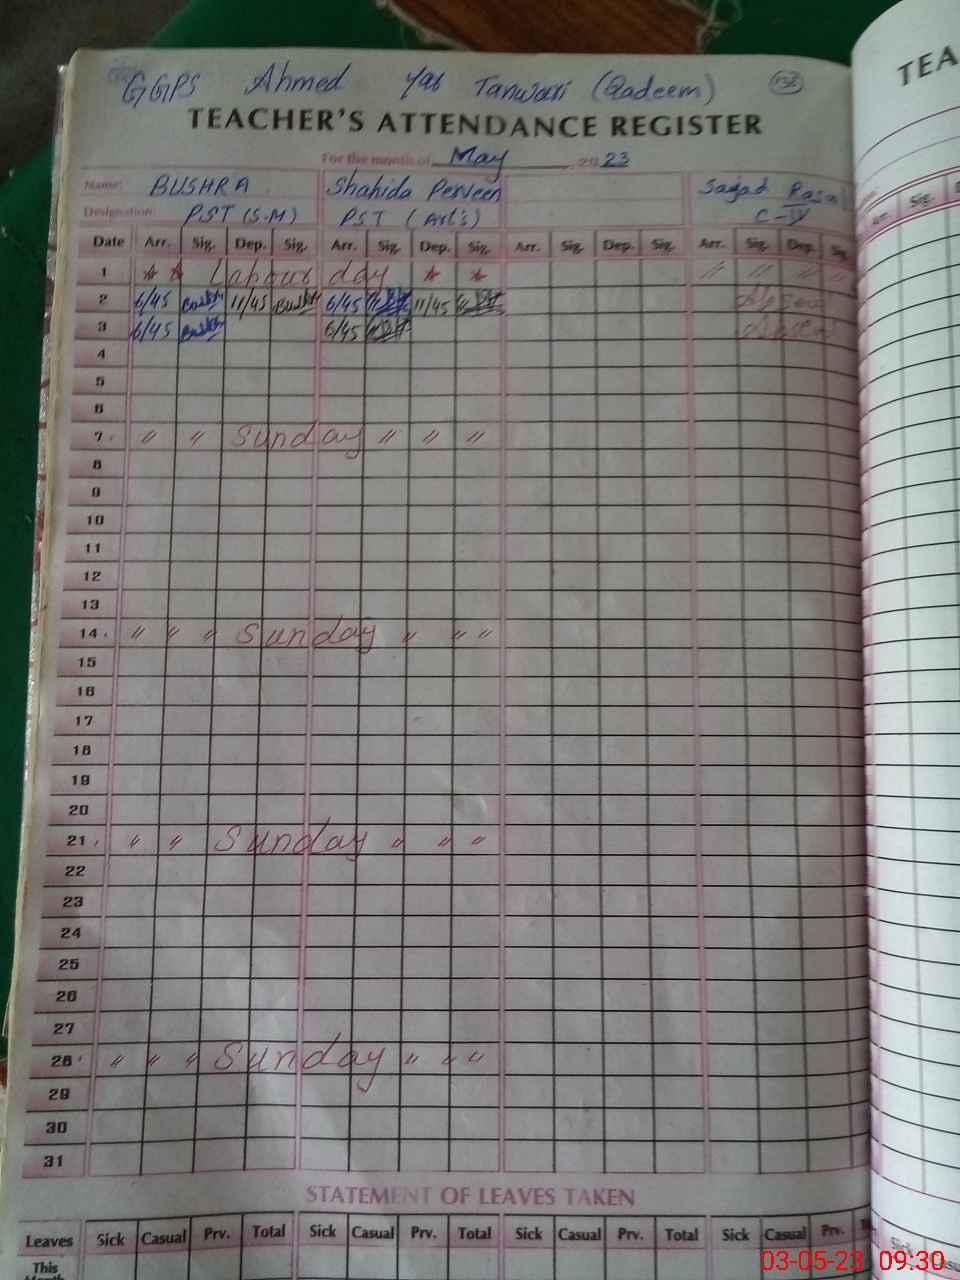 GGPS Ahmed Yar Tanwari (Qadeem)
TEACHER'S ATTENDANCE REGISTER
For the month of May 2023
Name: BUSHRA Shahida Perveen Sajjad
Designation: PST (S.M) PST (Art's) C-IV
Date Arr. Sig. Dep. Sig. Arr. Sig. Dep. Sig. Arr. Sig. Dep. Sig. Arr. Sig. Dep. Sig.
1 Labour day 〃 〃 〃 〃
2 6/45 Bushra 11/45 Bushra 6/45 11/45 Absent
3 6/45 Bushra 6/45 Absent
4
5
6
7 〃 〃 Sunday 〃 〃 〃
8
9
10
11
12
13
14 〃 〃 〃 Sunday 〃 〃 〃
15
16
17
18
19
20
21 〃 〃 Sunday 〃 〃 〃
22
23
24
25
26
27
28 〃 〃 〃 Sunday 〃 〃 〃
29
30
31
STATEMENT OF LEAVES TAKEN
Leaves Sick Casual Prv. Total Sick Casual Prv. Total Sick Casual Prv. Total Sick Casual Prv.
This
Month
TEA
Arr. Sig.
Sick
03-05-23 09:30